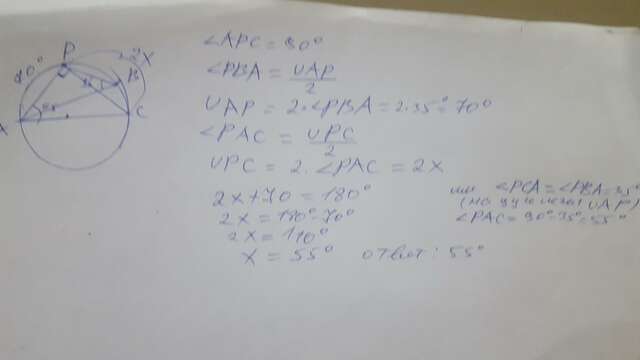 P
2X
70°
B
A
C
∠APC = 90°
∠PBA = ∪AP/2
∪AP = 2·∠PBA = 2·35° = 70°
∠PAC = ∪PC/2
∪PC = 2·∠PAC = 2X
2X+70 = 180°
2X = 180°-70°
2X = 110°
X = 55° ответ: 55°
или ∠PCA = ∠PBA = 35°
(на дуге AP)
∠PAC = 90°-35° = 55°